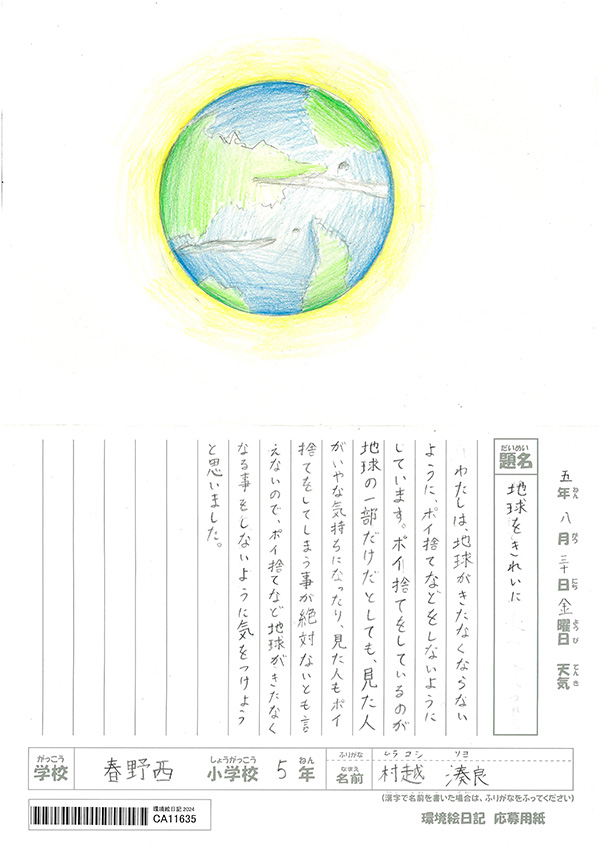 五年八月三十日金曜日 天気
ねん がつ にち ようび てんき
だいめい
題名 地球をきれいに
わたしは、地球がきたなくならない
ように、ポイ捨てなどをしないように
しています。ポイ捨てをしているのが
地球の一部だけだとしても、見た人
がいやな気持ちになったり、見た人もポイ
捨てをしてしまう事が絶対ないとも言
えないので、ポイ捨てなど地球がきたなく
なる事をしないように気をつけよう
と思いました。
がっこう しょうがっこう ねん ふりがな ムラコシ ソヨ
学校 春野西 小学校 5年 なまえ 名前 村越 湊良
(漢字で名前を書いた場合は、ふりがなをふってください)
環境絵日記2024
CA11635
環境絵日記 応募用紙